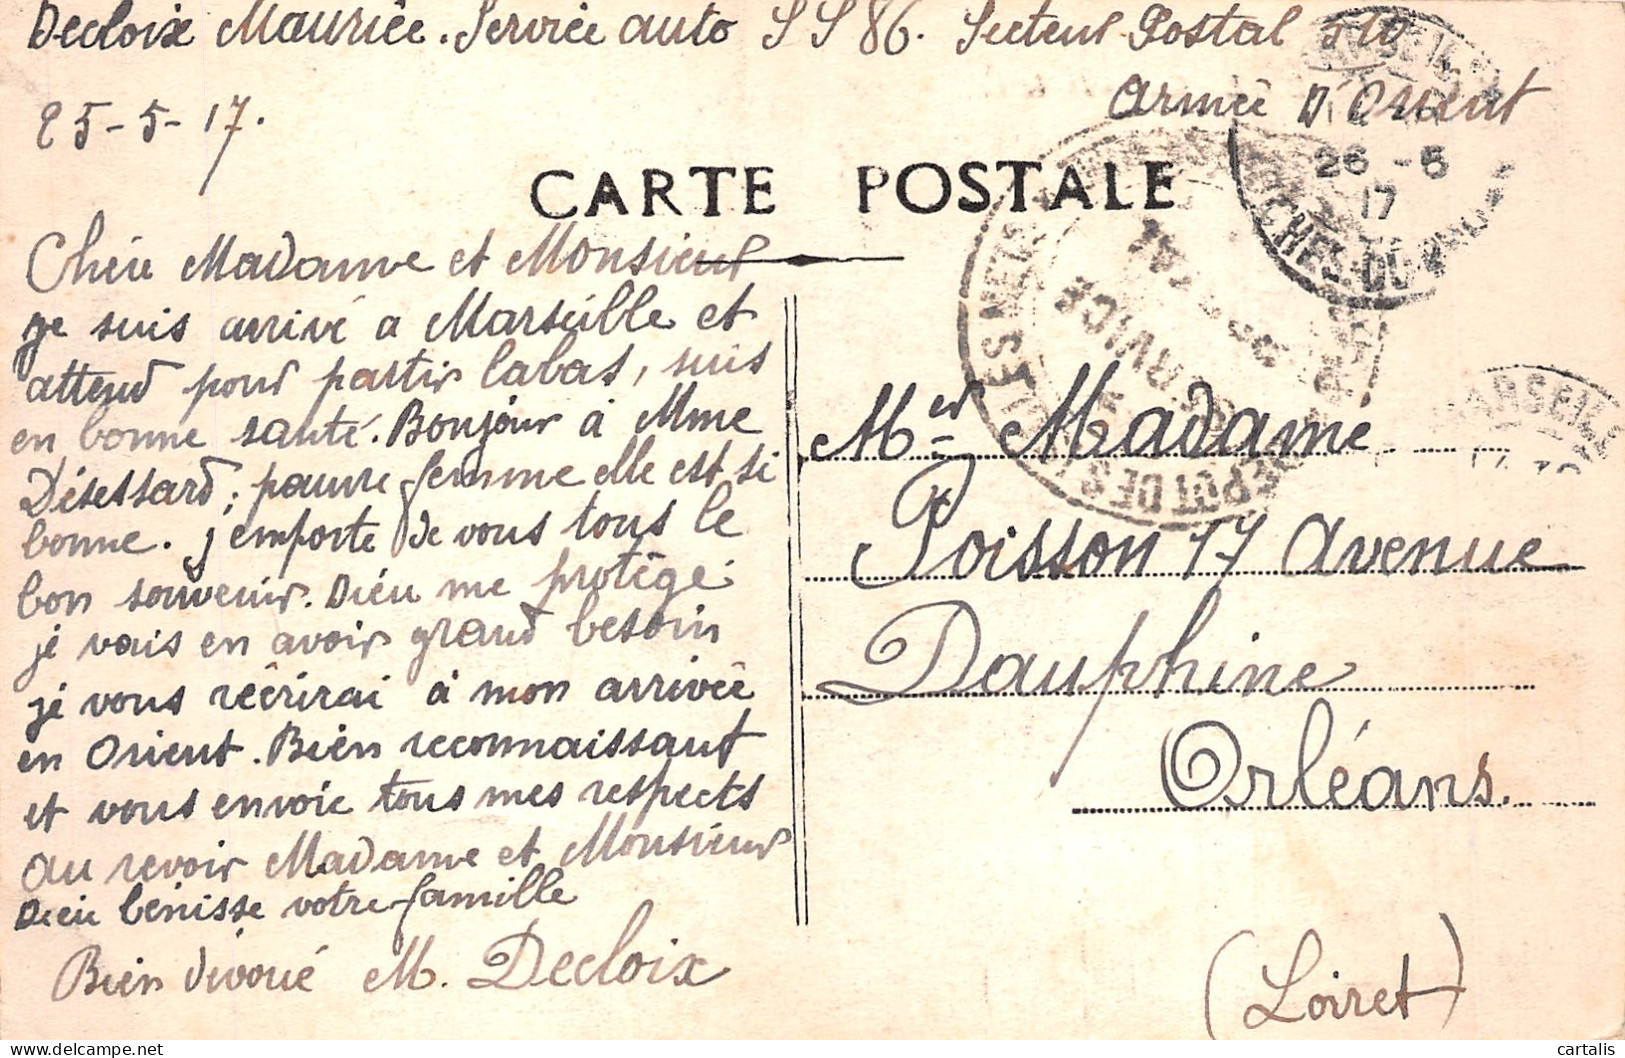 Decloix Maurice. Service auto S S 86. Secteur Postal 510
Armêe D'Orient
25-5-17.
CARTE POSTALE
MARSEILLE
26 - 5
17
BCHES-DU-RHONE
SERVICE
DEPOT DES
MARSEILLE
Chére Madame et Monsieur
je suis arrivé a Marseille et
attend pour partir labas, suis
en bonne santé. Bonjour à Mme
Désessard; pauvre femme elle est si
bonne. j'emporte de vous tous le
bon souvenir. Dieu me protêge
je vais en avoir grand besoin
je vous rêcrirai à mon arrivêe
en Orient. Bien reconnaissant
et vous envoie tous mes respects
au revoir Madame et Monsieur
Dieu bénisse votre famille
Bien dévoué M. Decloix
Mer Madame
Poisson 17 Avenue
Dauphine
Orléans.
(Loiret)
cartalis